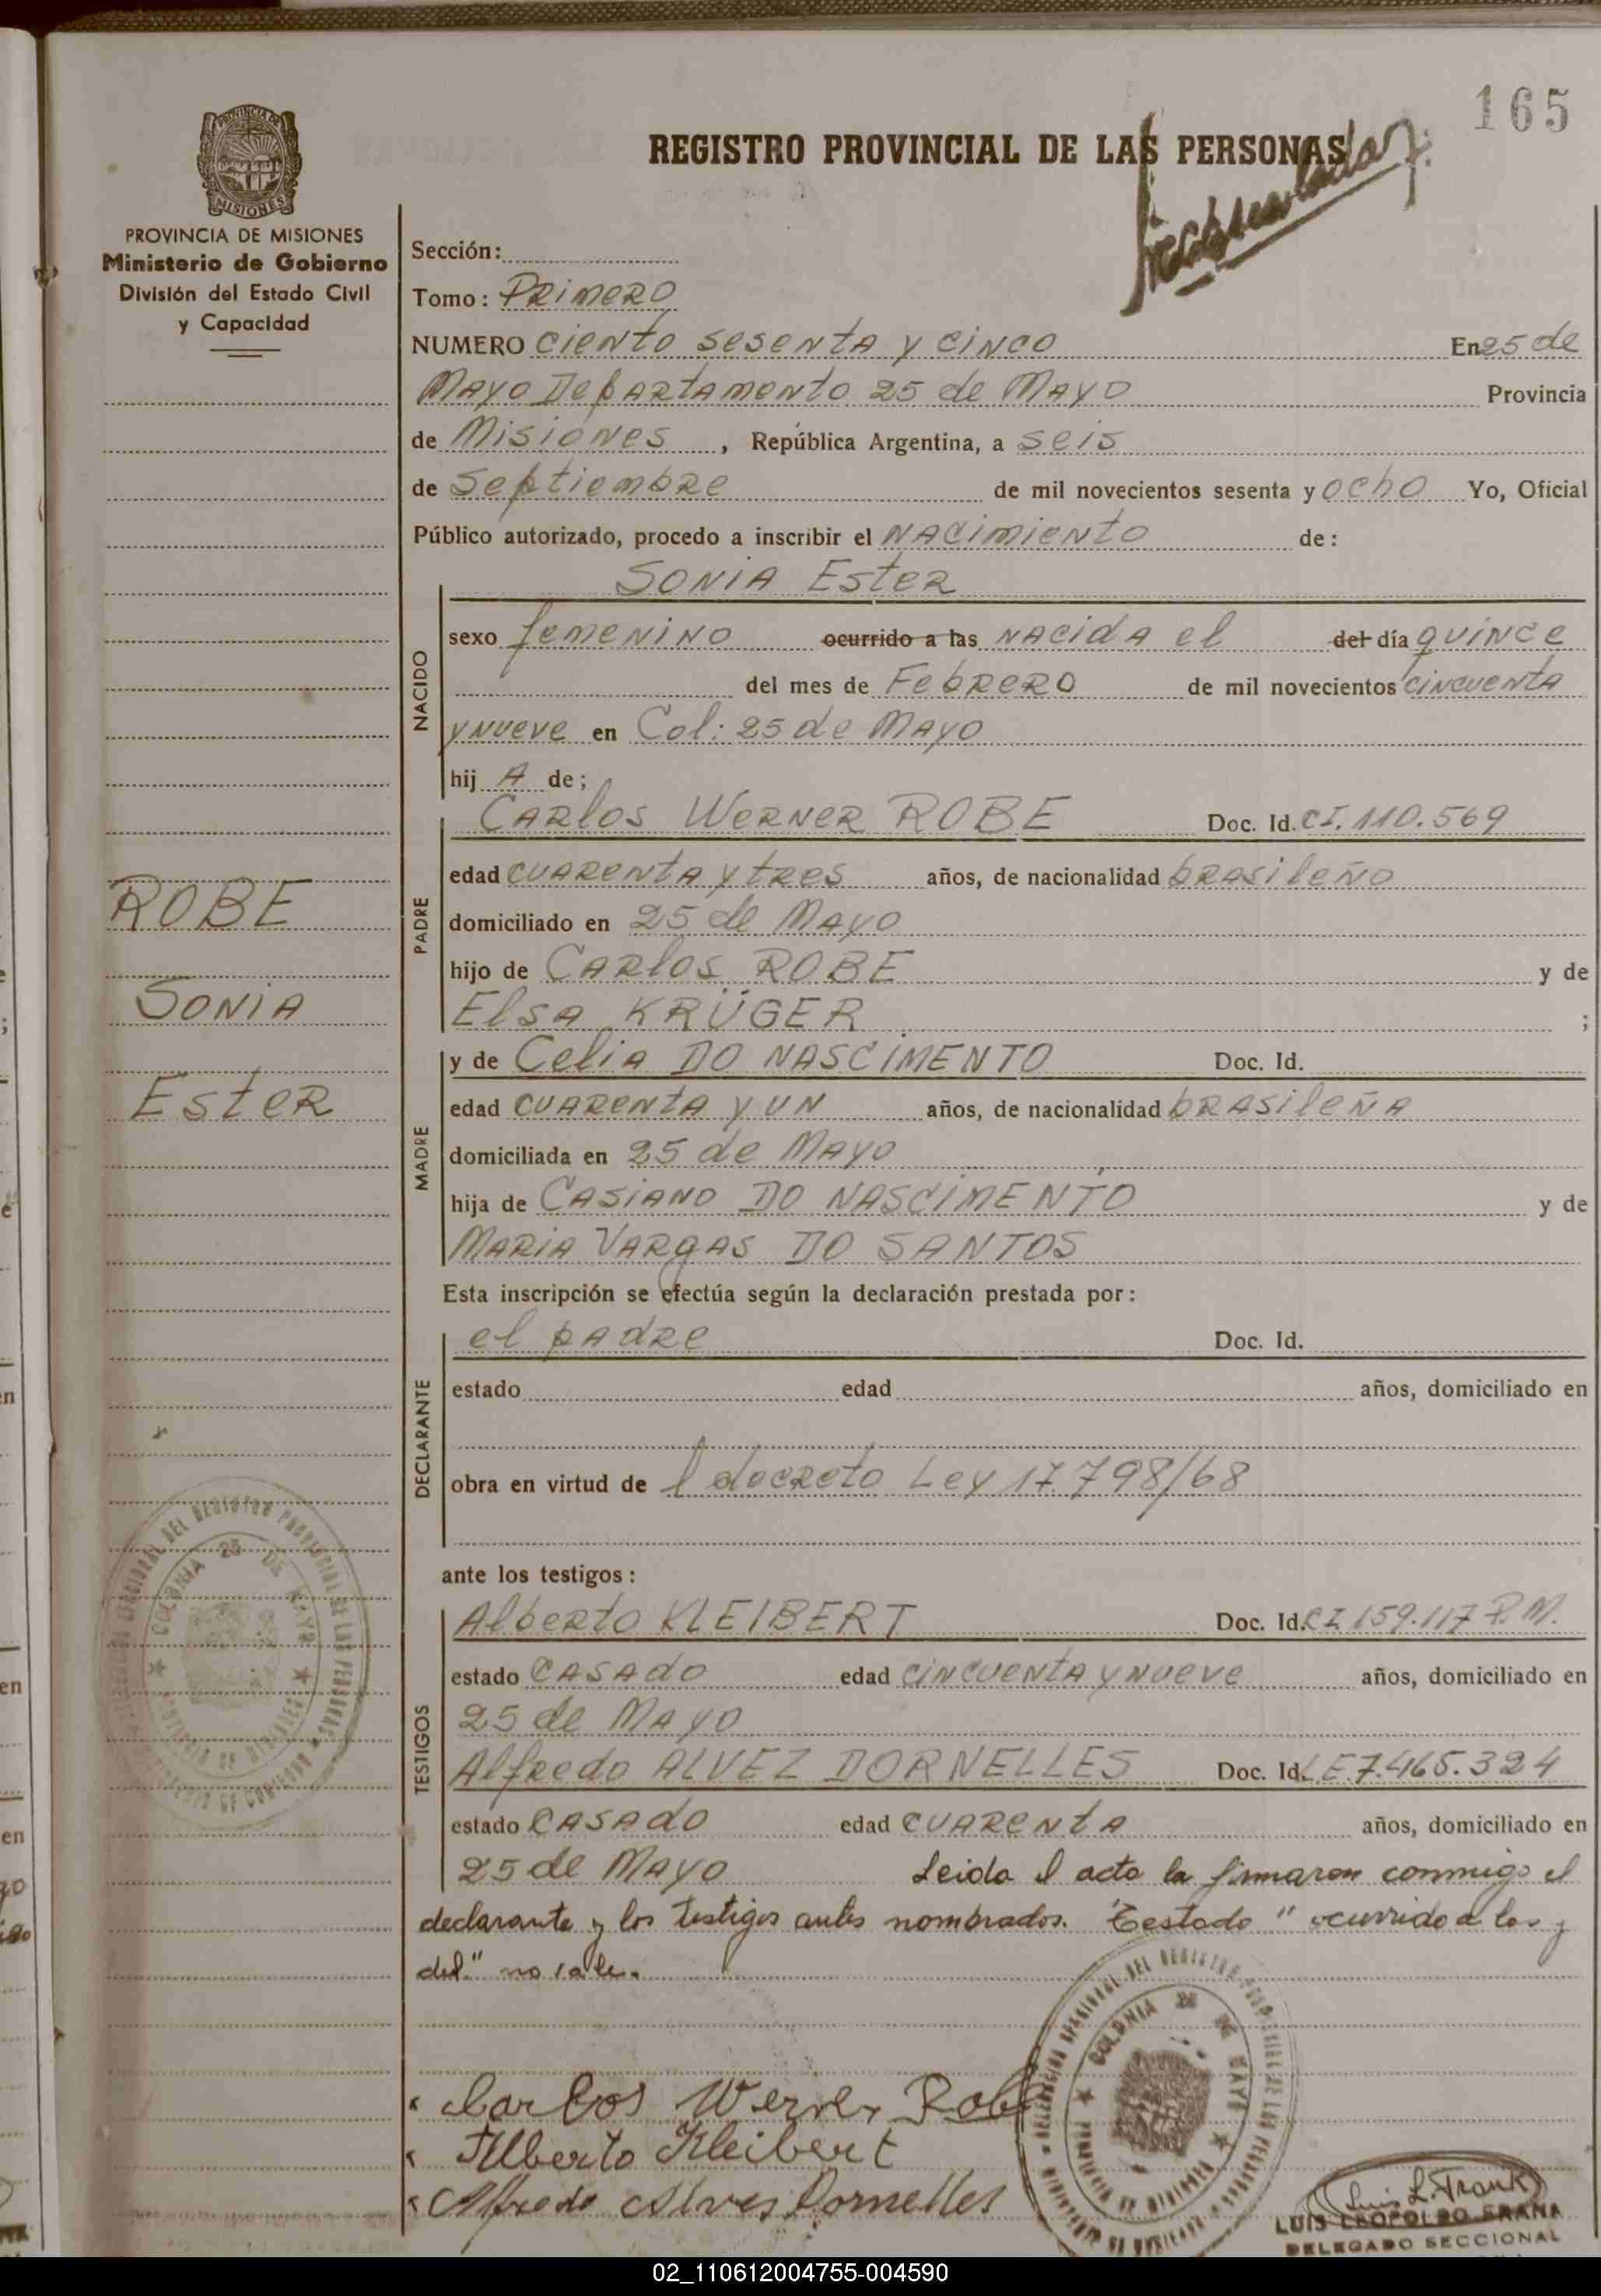 165
REGISTRO PROVINCIAL DE LAS PERSONAS
PROVINCIA DE MISIONES
Ministerio de Gobierno
División del Estado Civil
y Capacidad
Sección:
Tomo: Primero
NUMERO ciento sesenta y cinco En 25 de
Mayo Departamento 25 de Mayo Provincia
de Misiones, República Argentina, a seis
de Septiembre de mil novecientos sesenta y ocho Yo, Oficial
Público autorizado, procedo a inscribir el nacimiento de:
Sonia Ester
NACIDO
sexo femenino ocurrido a las nacida el del día quince
del mes de Febrero de mil novecientos cincuenta
y nueve en Col: 25 de Mayo
hij A de;
PADRE
Carlos Werner ROBE Doc. Id. CI. 110.569
edad cuarenta y tres años, de nacionalidad brasileño
domiciliado en 25 de Mayo
hijo de Carlos ROBE y de
Elsa KRÜGER ;
MADRE
y de Celia DO NASCIMENTO Doc. Id.
edad cuarenta y un años, de nacionalidad brasileña
domiciliada en 25 de Mayo
hija de Casiano DO NASCIMENTO y de
Maria Vargas DO SANTOS
ROBE
Sonia
Ester
Esta inscripción se efectúa según la declaración prestada por:
DECLARANTE
el padre Doc. Id.
estado edad años, domiciliado en
obra en virtud de l decreto Ley 17.798/68
ante los testigos:
TESTIGOS
Alberto KLEIBERT Doc. Id. CI 159.117 P.M.
estado casado edad cincuenta y nueve años, domiciliado en
25 de Mayo
Alfredo ALVEZ DORNELLES Doc. Id. LE 7.465.324
estado casado edad cuarenta años, domiciliado en
25 de Mayo Leida el acta la firmaron conmigo el
declarante y los testigos antes nombrados. Testado "ocurrido a las y
del" no vale.
Carlos Werner Robe
Alberto Kleibert
Alfredo Alves Dornelles
COLONIA 25 DE MAYO
PROVINCIA DE MISIONES
Luis L. Frank
LUIS LEOPOLDO FRANK
DELEGADO SECCIONAL
02_110612004755-004590